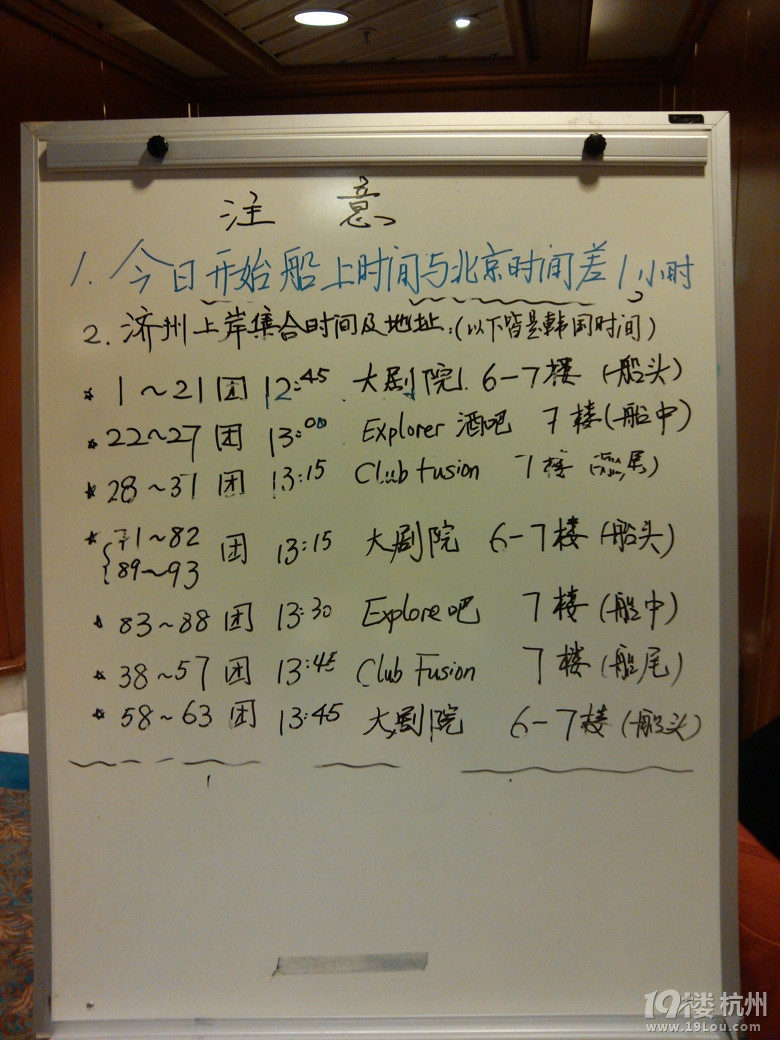 注 意
1. 今日开始船上时间与北京时间差1小时
2. 济州上岸集合时间及地址:(以下皆是韩国时间)
* 1~21团 12:45 大剧院 6-7楼 (船头)
* 22~27团 13:00 Explorer 酒吧 7楼(船中)
* 28~31团 13:15 Club Fusion 7楼 尾)
* 71~82
89~93 团 13:15 大剧院 6-7楼 (船头)
* 83~88团 13:30 Explore吧 7楼 (船中)
* 38~57团 13:45 Club Fusion 7楼 (船尾)
* 58~63团 13:45 大剧院 6-7楼 (船头)
19楼杭州
www.19Lou.com